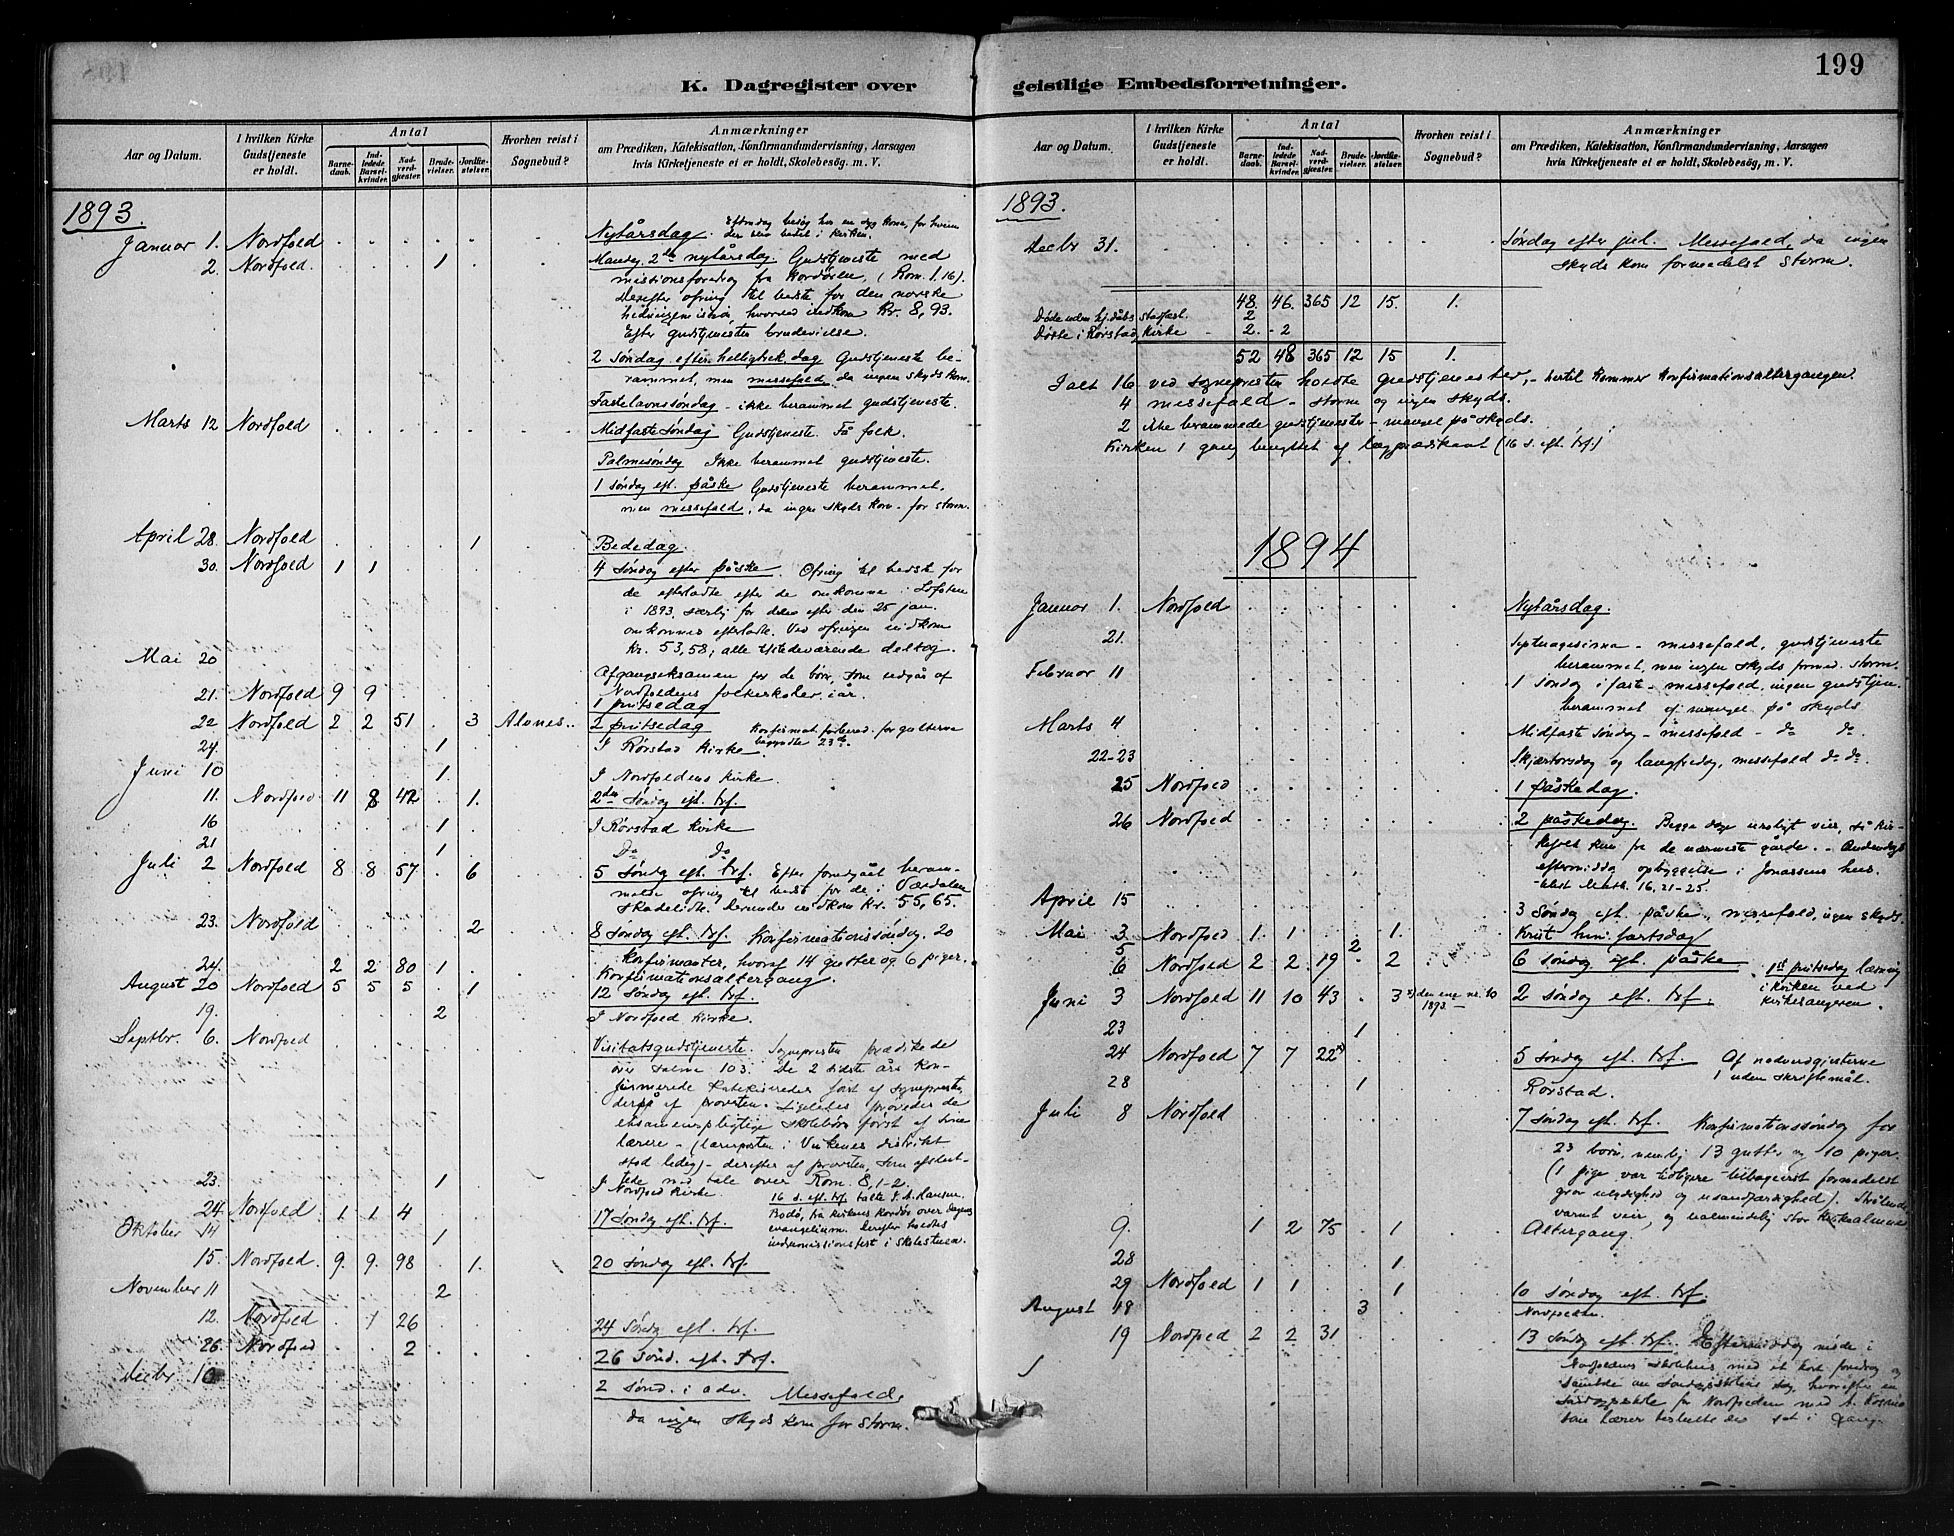 199
K. Dagregister over
geistlige Embedsforretninger.
Aar og Datum.
I hvilken Kirke Gudstjeneste er holdt.
Antal
Barne-daab.
Ind-ledede Barsel-kvinder.
Nad-verd-gjester.
Brude-vielser.
Jordfæ-stelser.
Hvorhen reist i Sognebud?
Anmærkninger
om Prædiken, Katekisation, Konfirmandundervisning, Aarsagen
hvis Kirketjeneste ei er holdt, Skolebesög, m. V.
1893.
Januar 1. Nordfold Nytårsdag. Eftmdag besög hos en syg kone, for hvem
der blev bedet i kirken.
2. Nordfold. 1 Mandag 2den nytårsdag. Gudstjeneste med
missionsforedrag fra Kordören, (Rom. 1.16).
Derefter ofring til bedste for den norske
hedningemission, hvorved indkom Kr. 8,93.
Efter gudstjenesten brudevielse.
2 Söndag efter helligtrek. dag Gudstjeneste be-
rammet, men messefald, da ingen skyds kom.
Fastelavnssöndag - ikke berammet gudstjeneste.
Marts 12 Nordfold Midfastesöndag Gudstjeneste. Få folk.
Palmesöndag Ikke berammet gudstjeneste.
1 söndag eft. påske Gudstjeneste berammet,
men messefald, da ingen skyds kom - for storm.
April 28. Nordfold 1 Bededag.
30. Nordfold 1 1 4 Söndag efter påske. Ofring til bedste for
de efterladte efter de omkomne i Lofoten
i 1893, særlig for dem efter den 25 jan.
omkomnes efterladte. Ved ofringen indkom
kr. 53,58; alle tilstedeværende deltog.
Mai 20 Afgangseksamen for de börn, som udgår af
Nordfoldens folkeskoler i år.
21. Nordfold 9 9 1 pintsedag
22 Nordfold 2 2 51 . 3 Alvnes.. 2 pintsedag Konfirmat. forbered. for gutterne
begyndte 23de.
24. 1 I Rörstad kirke
Juni 10 1. I Nordfoldens kirke.
11. Nordfold 11 8 42 . 1. 2den Söndag eft. trf.
16 1 I Rörstad kirke
21 1 Do Do
Juli 2 Nordfold 8 8 57 . 6 5 Söndag eft. trf. Efter foregået beram-
melse ofring til bedste for de i Værdalen
skadelidte. Herunder indkom kr. 55,65.
23. Nordfold 2 8 Söndag eft. trf. Konfirmationssöndag, 20
konfirmanter, hvoraf 14 gutter og 6 piger.
24. 2 2 80 1 Konfirmationsaltergang.
August 20 Nordfold 5 5 5 . 1 12 Söndag eft. trf.
19. 2 I Nordfold kirke.
Septbr. 6. Nordfold Visitatsgudstjeneste. Sognepresten prædikede
over Salme 103. De 2 sidste års kon-
firmerede katekiseredes först af sognepresten,
derpå af provsten. Ligeledes prövedes de
eksamenspligtige skolebörn först af sine
lærere - (lærerposten i Vinkenes distrikt
stod ledig) - derefter af provsten, som afslut-
tede med tale over Rom. 8,1-2.
23. 1 I Nordfold kirke.
16 s. eft. trf. talte
Bodö, fra kirkens kordör over dagens
evangelium. Derefter holdtes
indremissionsfest i skolestuen.
24. Nordfold 1 1 4 17 Söndag eft. trf.
Oktober 14 1
15. Nordfold. 9. 9. 98 . 1. 20 Söndag eft. trf.
November 11 2
12. Nordfold . 1 26 24 Söndg eft. trf.
26. Nordfold . . 2 26 Sönd. eft. trf.
Decbr 10 2 sönd. i adv. Messefald,
da ingen skyds kom for storm.
Aar og Datum.
I hvilken Kirke Gudstjeneste er holdt.
Antal
Barne-daab.
Ind-ledede Barsel-kvinder.
Nad-verd-gjester.
Brude-vielser.
Jordfæ-stelser.
Hvorhen reist i Sognebud?
Anmærkninger
om Prædiken, Katekisation, Konfirmandundervisning, Aarsagen
hvis Kirketjeneste ei er holdt, Skolebesög, m. V.
1893.
Decbr 31. Söndag efter jul. Messefald, da ingen
skyds kom formedelst storm.
48. 46. 365 12 15. 1.
Döde uden hj.dåbs stadfæst. 2
Döbte i Rörstad kirke - 2. - 2
52 48 365 12 15 1.
Ialt 16 ved sognepresten holdte gudstjenester, - hertil kommer konfirmationsaltergangen.
4 messefald - storm og ingen skyds.
2 ikke berammede gudstjenester - mangel på skyds.
Kirken 1 gang benyttet af lægprædikant (16 s. eft. trf.)
1894
Januar 1. Nordfold Nytårsdag.
21. Septuagesima - messefald, gudstjeneste
berammet, men ingen skyds formed. storm.
Februar 11 1 söndag i fast - messefald, ingen gudstjen.
berammet af mangel på skyds
Marts 4 Midfast söndag - messefald - do do.
22-23 Skjærtorsdag og langfredag, messefald do do.
25 Nordfold 1 påskedag.
26 Nordfold 2 påskedag. Begge dage uroligt veir, så kir-
kefolk kun fra de nærmeste gårde. - Andendags
eftermiddag opbyggelse i Jonassens hus.
- tekst Math. 16, 21-25.
April 15 3 Söndag eft. påske, messefald, ingen skyds.
Mai 3 Nordfold 1. 1. . 1. Krist himmelfartsdag
5 2
6 Nordfold 2 2 19 . 2 6 söndag eft. påske. 1st pintsedag læsning
i kirken ved
kirkesangeren.
Juni 3 Nordfold 11 10 43 . 3 x) den ene no. 10
1893. - 2 söndag eft. trf.
23 1
24 Nordfold 7 7 22 x) 5 Söndag eft. trf. Af nadverdgjesterne
1 uden skriftemål.
28 1 Rörstad.
Juli 8 Nordfold 7 Söndag eft. trf. Konfirmationssöndag for
23 börn, nemlig 13 gutter og 10 piger.
(1 pige var tidligere tilbagevist formedelst
grov ulydighed og usandfærdighed). Strålende
varmt veir, og ualmindelig stor kirkealmue
9. 1 2 75 . 1 Altergang.
28 1.
29 Nordfold 1 1 1 10 Söndag eft. trf.
August 18 3
19 Nordfold 2 2 31 13 Söndg eft. trf. Eftermiddag möde i
Nordfoldens skolehus, med et kort foredrag og
samtale om söndagsskolens sag, hvorefter en
söndagsskole for Nordfolden med
som lærer besluttedes sat i gang.